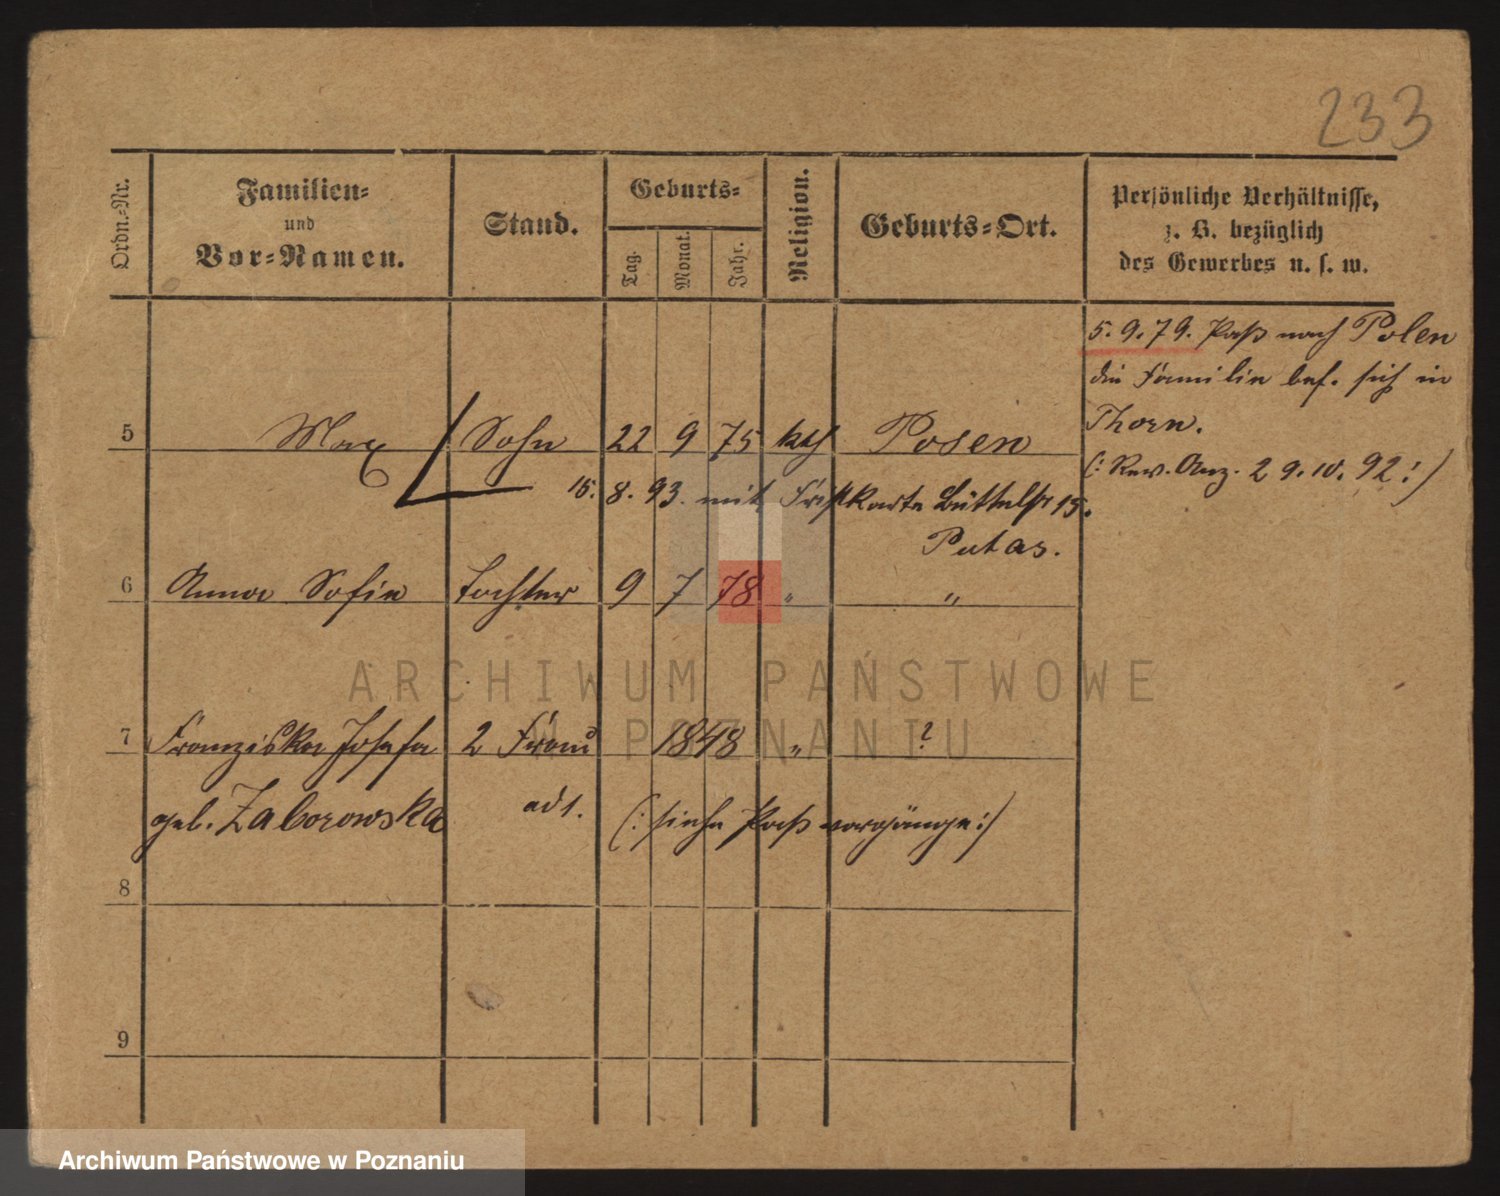 233
Ordn.-Nr.
Familien-
und
Vor-Namen.
Stand.
Geburts-
Tag.
Monat.
Jahr.
Religion.
Geburts-Ort.
Persönliche Verhältnisse,
z. B. bezüglich
des Gewerbes u. s. w.
5. 9. 79. Paß nach Polen
die Familie bef. sich in
Thorn.
(: Rew. Anz. 29. 10. 92 :)
5 Max Sohn 22 9 75 kth Posen
15. 8. 93. mit 15.
6 Anna Sofie Tochter 9 7 78 " "
7 Franziska Josefa 2 Frau 1848 " ?
geb. Zaborowska ad 1. (: siehe Paßvorgänge :)
8
9
ARCHIWUM PAŃSTWOWE
W POZNANIU
Archiwum Państwowe w Poznaniu